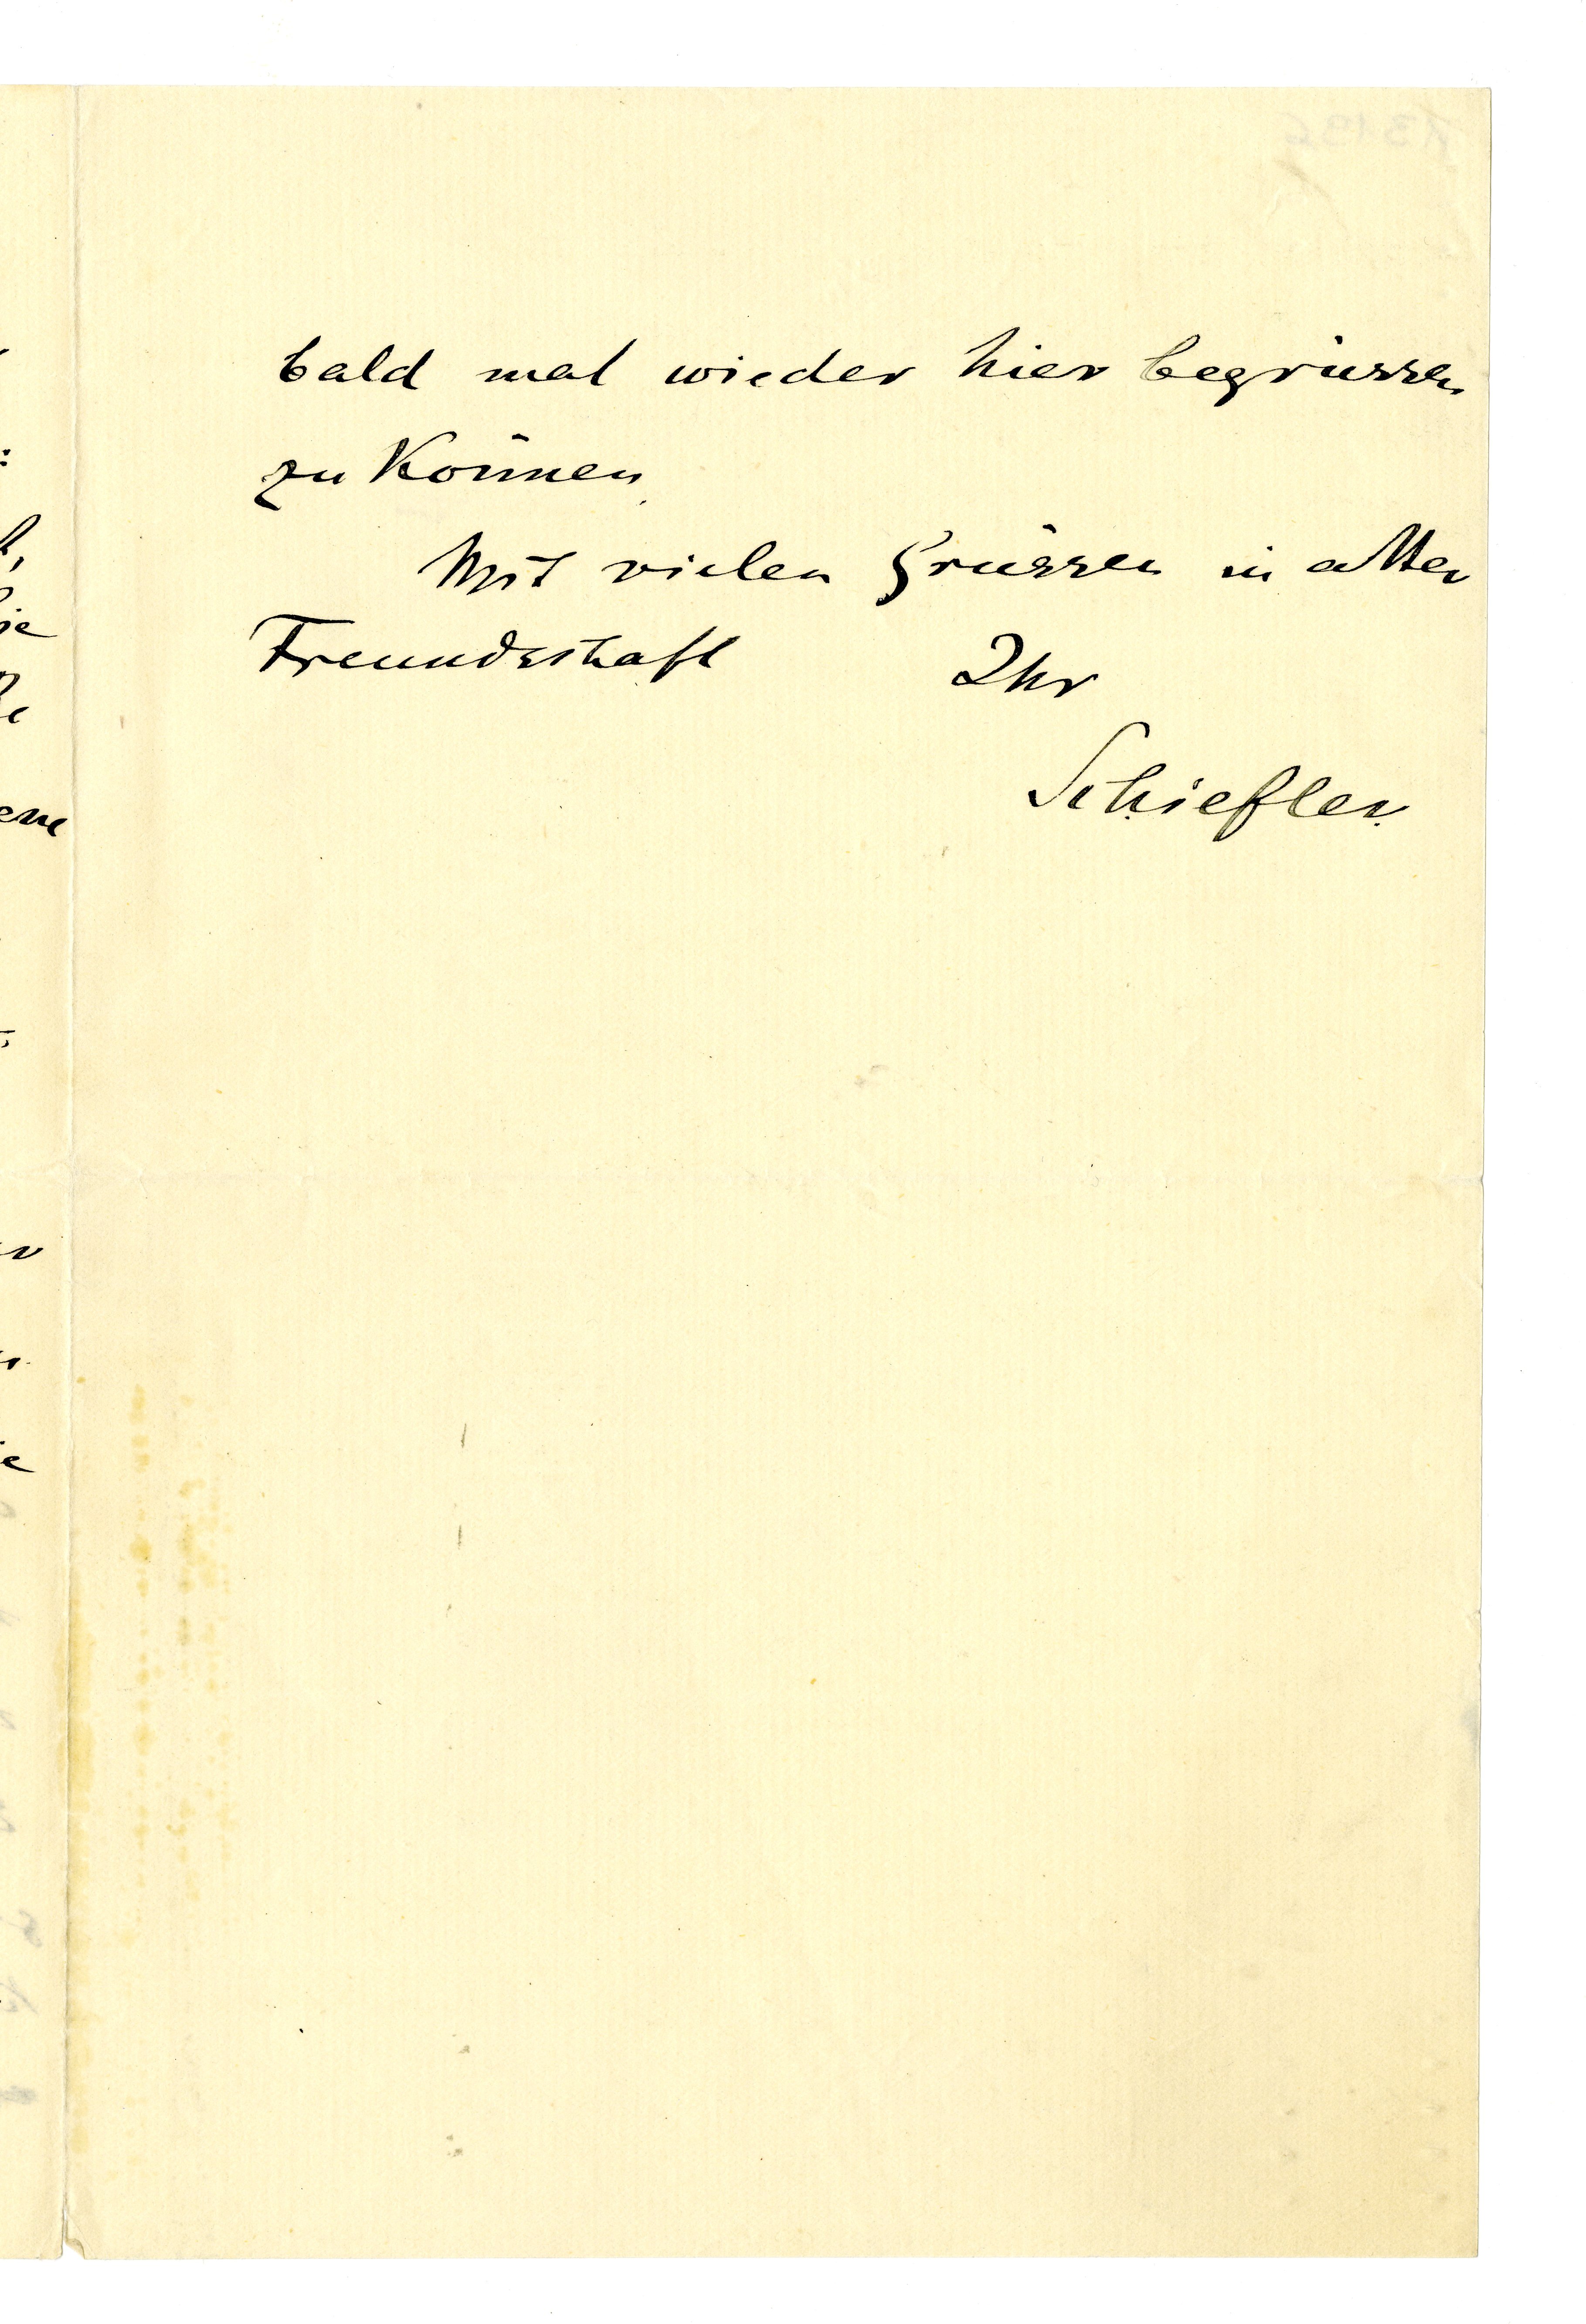 bald mal wieder hier begrüssen
zu können
Mit vielen Grüssen in alter
Freundschaft Ihr
Schiefler